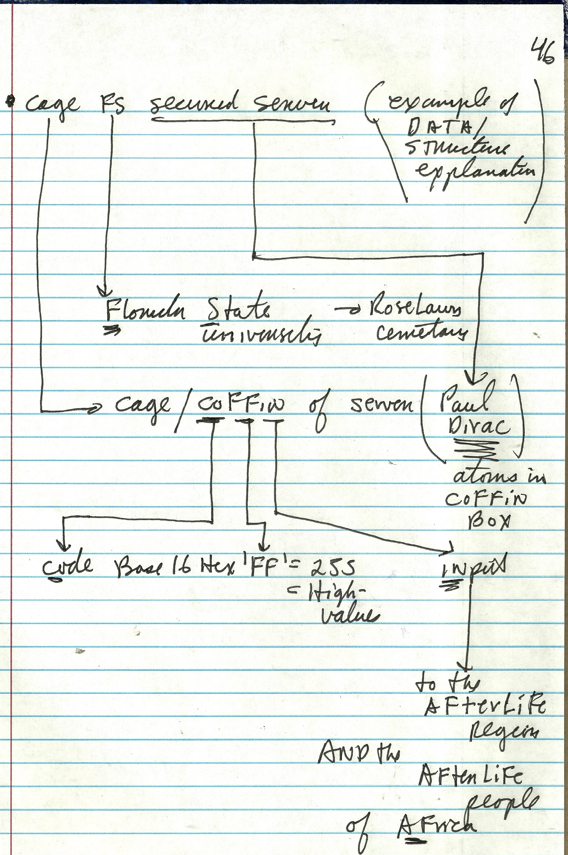 46
• cage FS secured server (example of
DATA/
Structure
explanation)
Florida State → RoseLawn
University cemetary
cage / COFFiN of server (Paul
Dirac)
atoms in
COFFiN
BOX
code Base 16 Hex 'FF' = 255 input
= High-
value
to the
AFterLiFe
Region
AND the
AFterLiFe
people
of AFrica